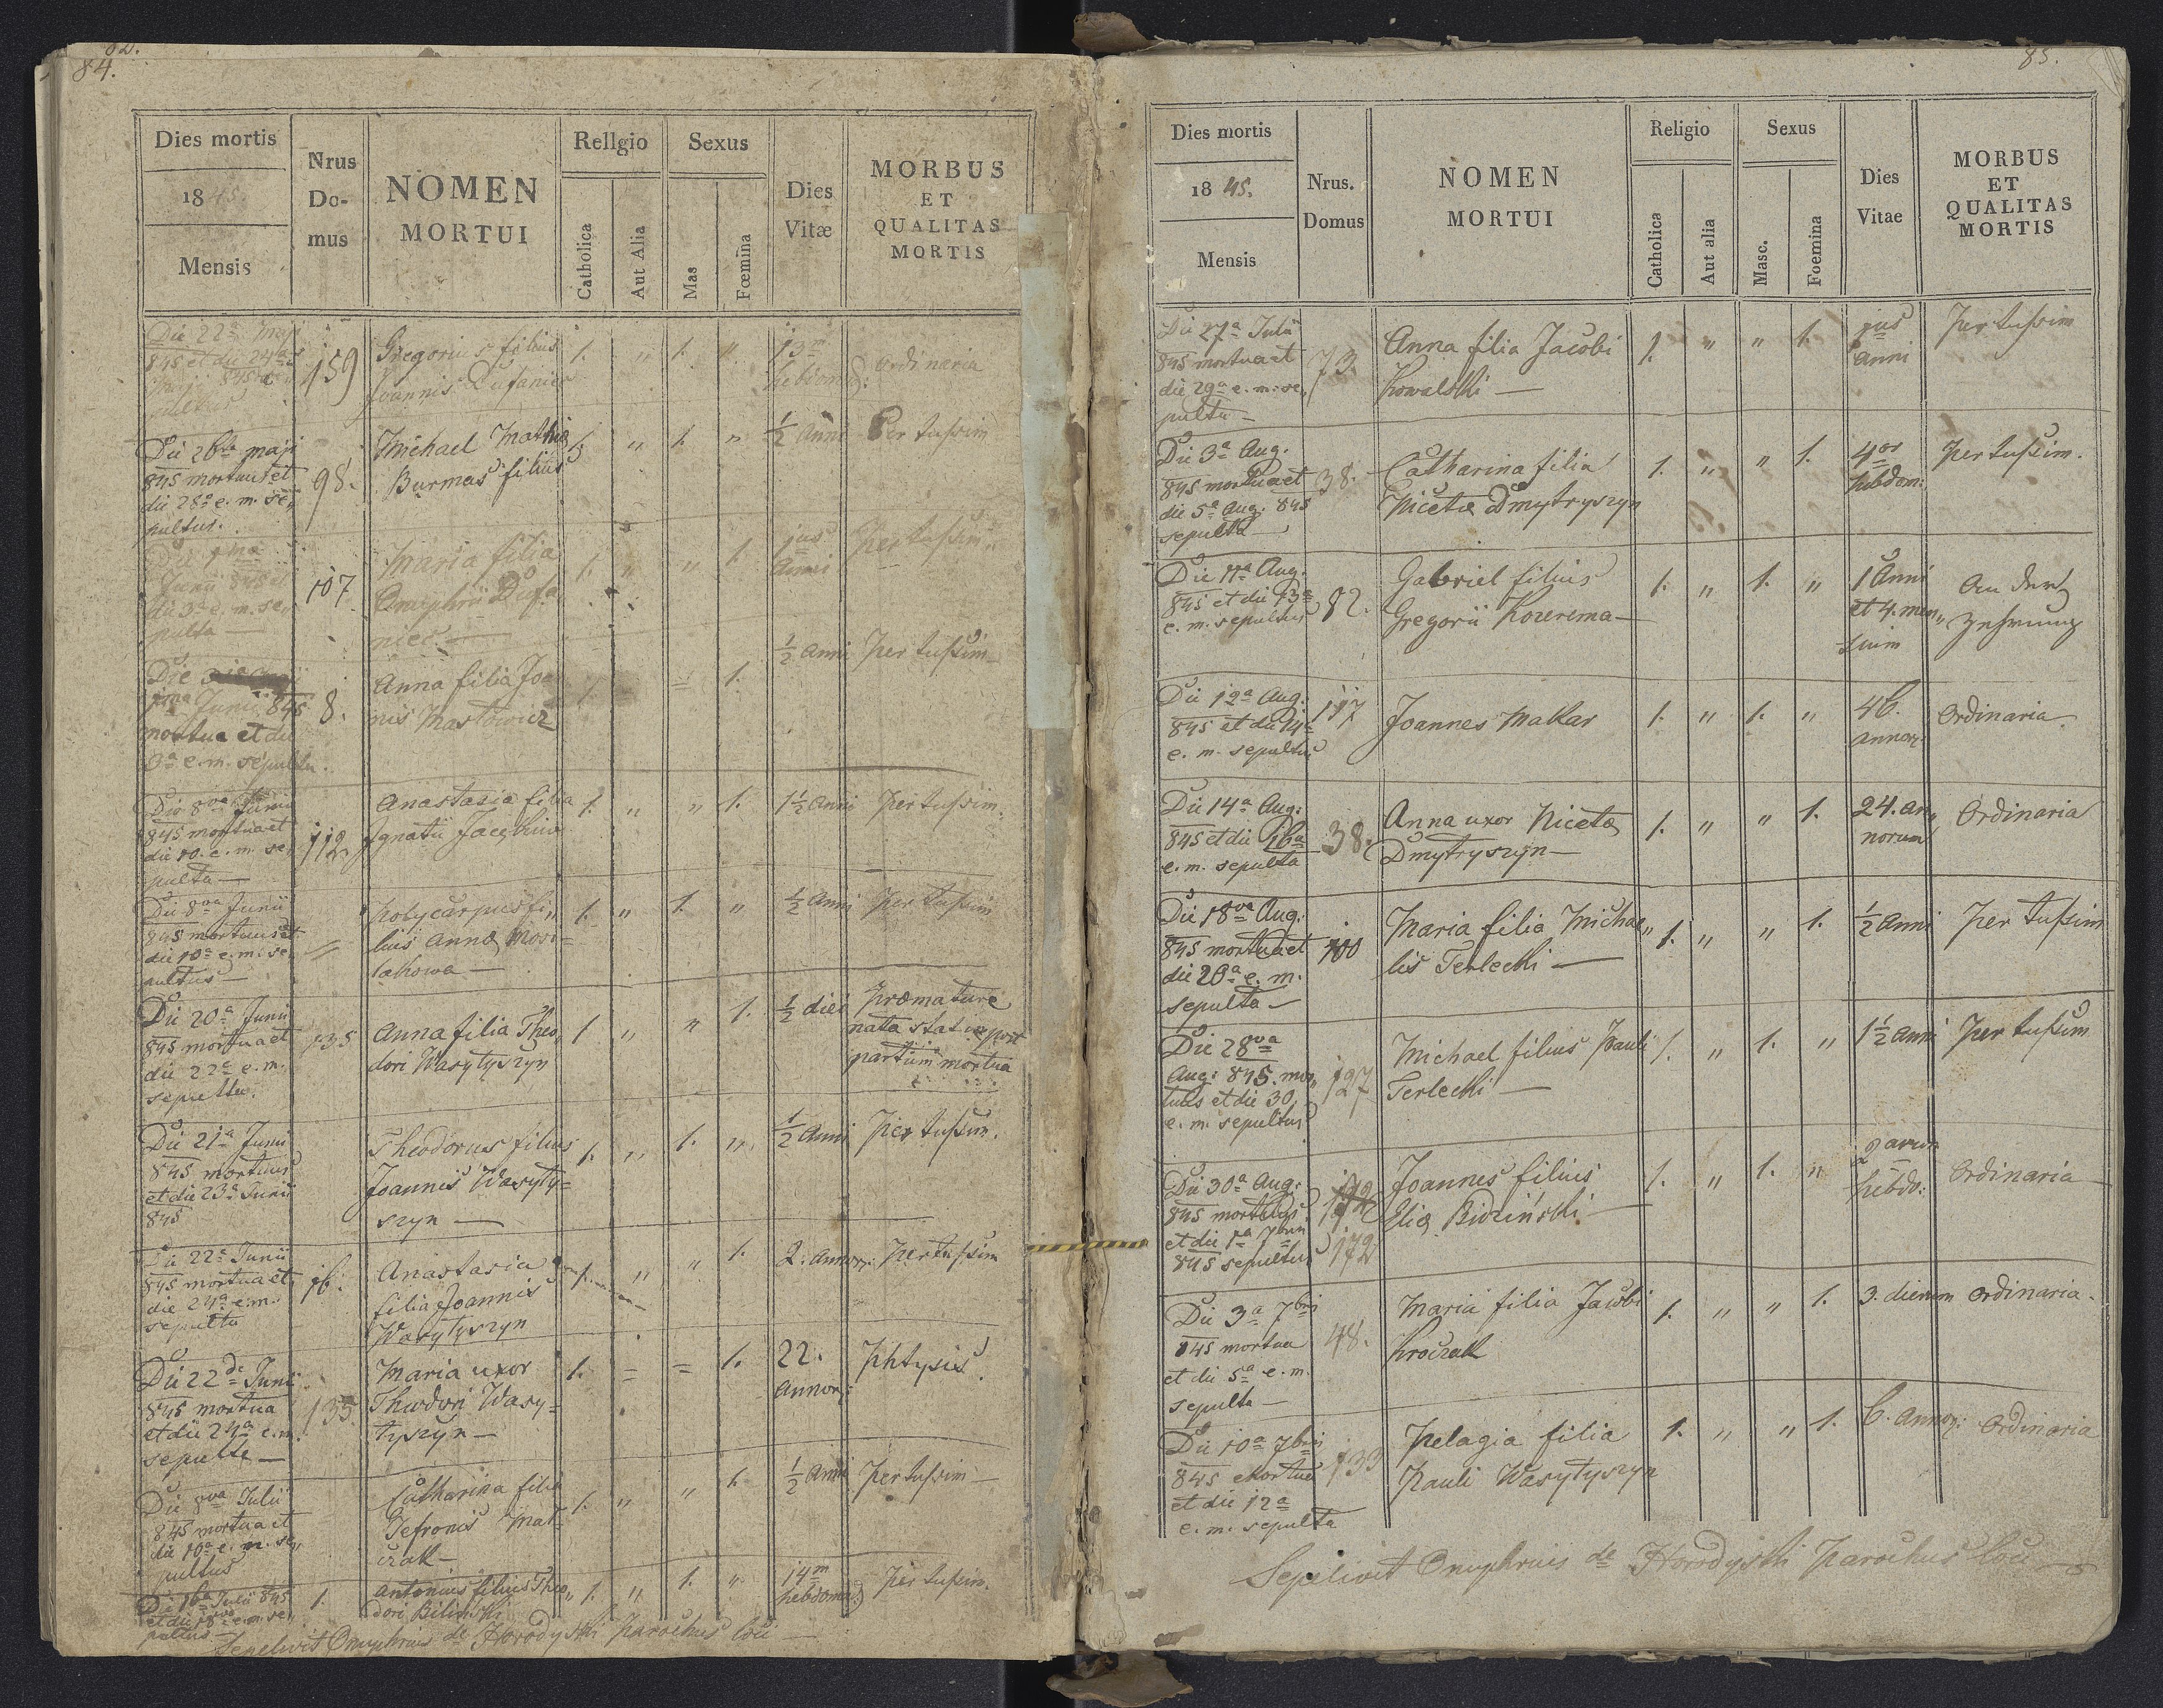 82.
84.
Dies mortis
1845.
Mensis
Nrus
Do-
mus
NOMEN
MORTUI
Religio
Catholica
Aut Alia
Sexus
Mas
Fœmina
Dies
Vitæ
MORBUS
ET
QUALITAS
MORTIS
Die 22a Maji
845 et die 24a
Maji 845 se„
pultus
159
Gregorius filius
Joannis Dufaniec
1. „ 1. „
13a
hebdom:
ordinaria
Die 26ta maji
845 mortuus et
die 28a e. m. se„
pultus.
98.
Michael Mathiæ
Burmas filius
1. „ 1. „
½ Anni
Per tussim
Die 1ma
Junii 845 et
die 3a e. m. se„
pulta —
107
Maria filia
Onuphrii Dufa
niec —
1. „ „ 1.
jus
Anni
Per tussim
Die
1ma Junii 845
mortua et die
3a e. m. sepulta.
8.
Anna filia Joan
nis Mastowicz
1. = = 1.
½ Anni
Per tussim —
Die 8va Junii
845 mortua et
die 10. e. m. se„
pulta —
112.
Anastasia filia
Ignatii Jacykiw
1. „ „ 1.
1½ Anni
Per tussim.
Die 8va Junii
845 mortuus et
die 10a e. m. se„
pultus —
=
Polycarpus fi„
lius Annæ Mosi=
lakowa —
1. „ 1. „
½ Anni
Per tussim
Die 20a Junii
845 mortua et
die 22a e. m.
sepulta.
135
Anna filia Theo„
dori Wasylyszyn
1 „ „ 1.
½ diei
Præmature
nata statim post
partum mortua
Die 21a Junii
845 mortuus
et die 23a Junii
845
Theodorus filius
Joannis Wasyly=
szyn —
1. „ 1. „
½ Anni
Per tussim.
Die 22a Junii
845 mortua et
die 24a e. m.
sepulta
16.
Anastasia
filia Joannis
Wasylyszyn
1. „ „ 1.
2. annor:
Per tussim
Die 22da Junii
845 mortua
et die 24a e. m.
sepulta —
135.
Maria uxor
Theodori Wasy=
lyszyn —
1. = = 1.
22.
Annor:
Phtysis.
Die 8va Julii
845 mortua et
die 10a e. m. se„
pultus
Catharina filia
Jefronis Mat=
czak —
1. „ „ 1.
½ Anni
Per tussim —
Die 16a Julii 845
et die 18va e. m. se„
pultus —
1.
Antonius filius Theo„
dori Bilinski
1. „ 1. „
14m
hebdoma:
Per tussim.
Sepelivit Onuphrius de Horodyski Parochus loci —
85.
Dies mortis
1845.
Mensis
Nrus.
Domus
NOMEN
MORTUI
Religio
Catholica
Aut alia
Sexus
Masc.
Foemina
Dies
Vitae
MORBUS
ET
QUALITAS
MORTIS
Die 27a Julii
845 mortua et
die 29a e. m. se„
pulta —
73.
Anna filia Jacobi
Kowalski —
1. „ „ 1.
jus
Anni
Per tussim
Die 3a Aug.
845 mortua et
die 5a Aug. 845
sepulta —
38.
Catharina filia
Nicetæ Dmytryszyn
1. „ „ 1.
4or
hebdom:
Per tussim.
Die 11a Aug.
845 et die 13a
e. m. sepultus
82.
Gabriel filius
Gregorii Kozerema —
1. „ 1. „
1 Anni
et 4. men„
sium
An der
Zehrung
Die 12a Aug:
845 et die 14a
e. m. sepultus
117
Joannes Makar
1. „ 1. „
46.
annor:
Ordinaria.
Die 14a Aug:
845 et die 16a
e. m. sepulta
38.
Anna uxor Nicetæ
Dmytryszyn —
1. „ „ 1.
24. an„
norum
Ordinaria
Die 18va Aug:
845 mortua et
die 20a e. m.
sepulta —
100
Maria filia Michae„
lis Terlecki —
1. „ „ 1.
½ Anni
Per tussim
Die 28va
Aug: 845. mor„
tuus et die 30
e. m. sepultus
127
Michael filius Pauli
Terlecki —
1. „ 1. „
1½ Anni
Per tussim
Die 30a Aug:
845 mortuus
et die 1a 7bris
845 sepultus
172
Joannes filius
Eliæ Bidziński —
1. „ 1. „
2 arum
hebdo:
Ordinaria —
Die 3a 7bris
845 mortua
et die 5a e. m.
sepulta —
48.
Maria filia Jacobi
Kroczak
1. „ „ 1.
3. dierum
Ordinaria.
Die 10a 7bris
845 mortua
et die 12a
e. m. sepulta
133
Pelagia filia
Pauli Wasylyszyn
1. „ „ 1.
6. Annor:
Ordinaria
Sepelivit Onuphrius de Horodyski Parochus loci